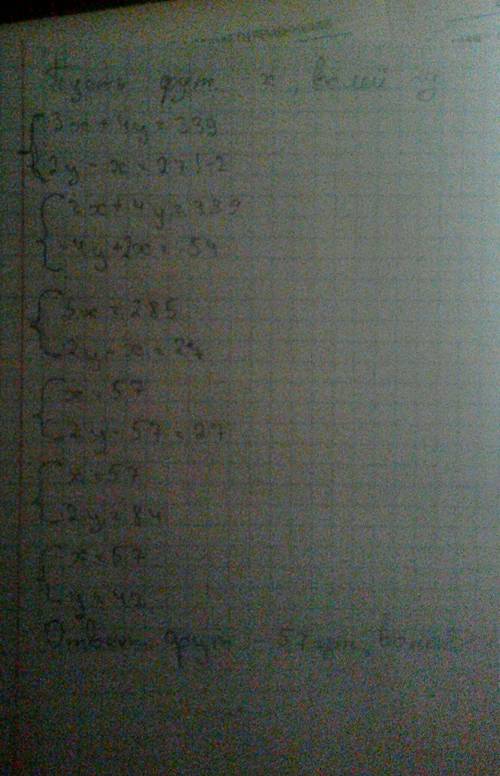 Пусть фут. x, волей y
3x + 4y = 339
2y - x = 27 | · -2
3x + 4y = 339
-4y + 2x = -54
5x = 285
2y - x = 27
x = 57
2y - 57 = 27
x = 57
2y = 84
x = 57
y = 42
Ответ: фут - 57 шт,